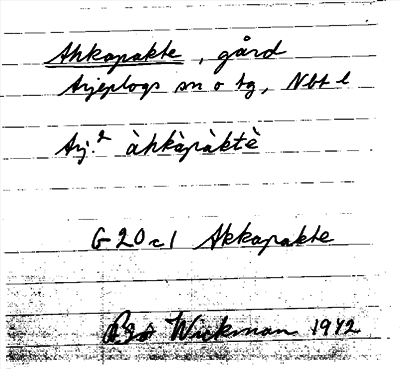 Ahkapakte, gård
Arjeplogs sn o tg, Nbt l
Arj.² àhkàpàktè
G20c1 Akkapakte
Bo Wickman 1942